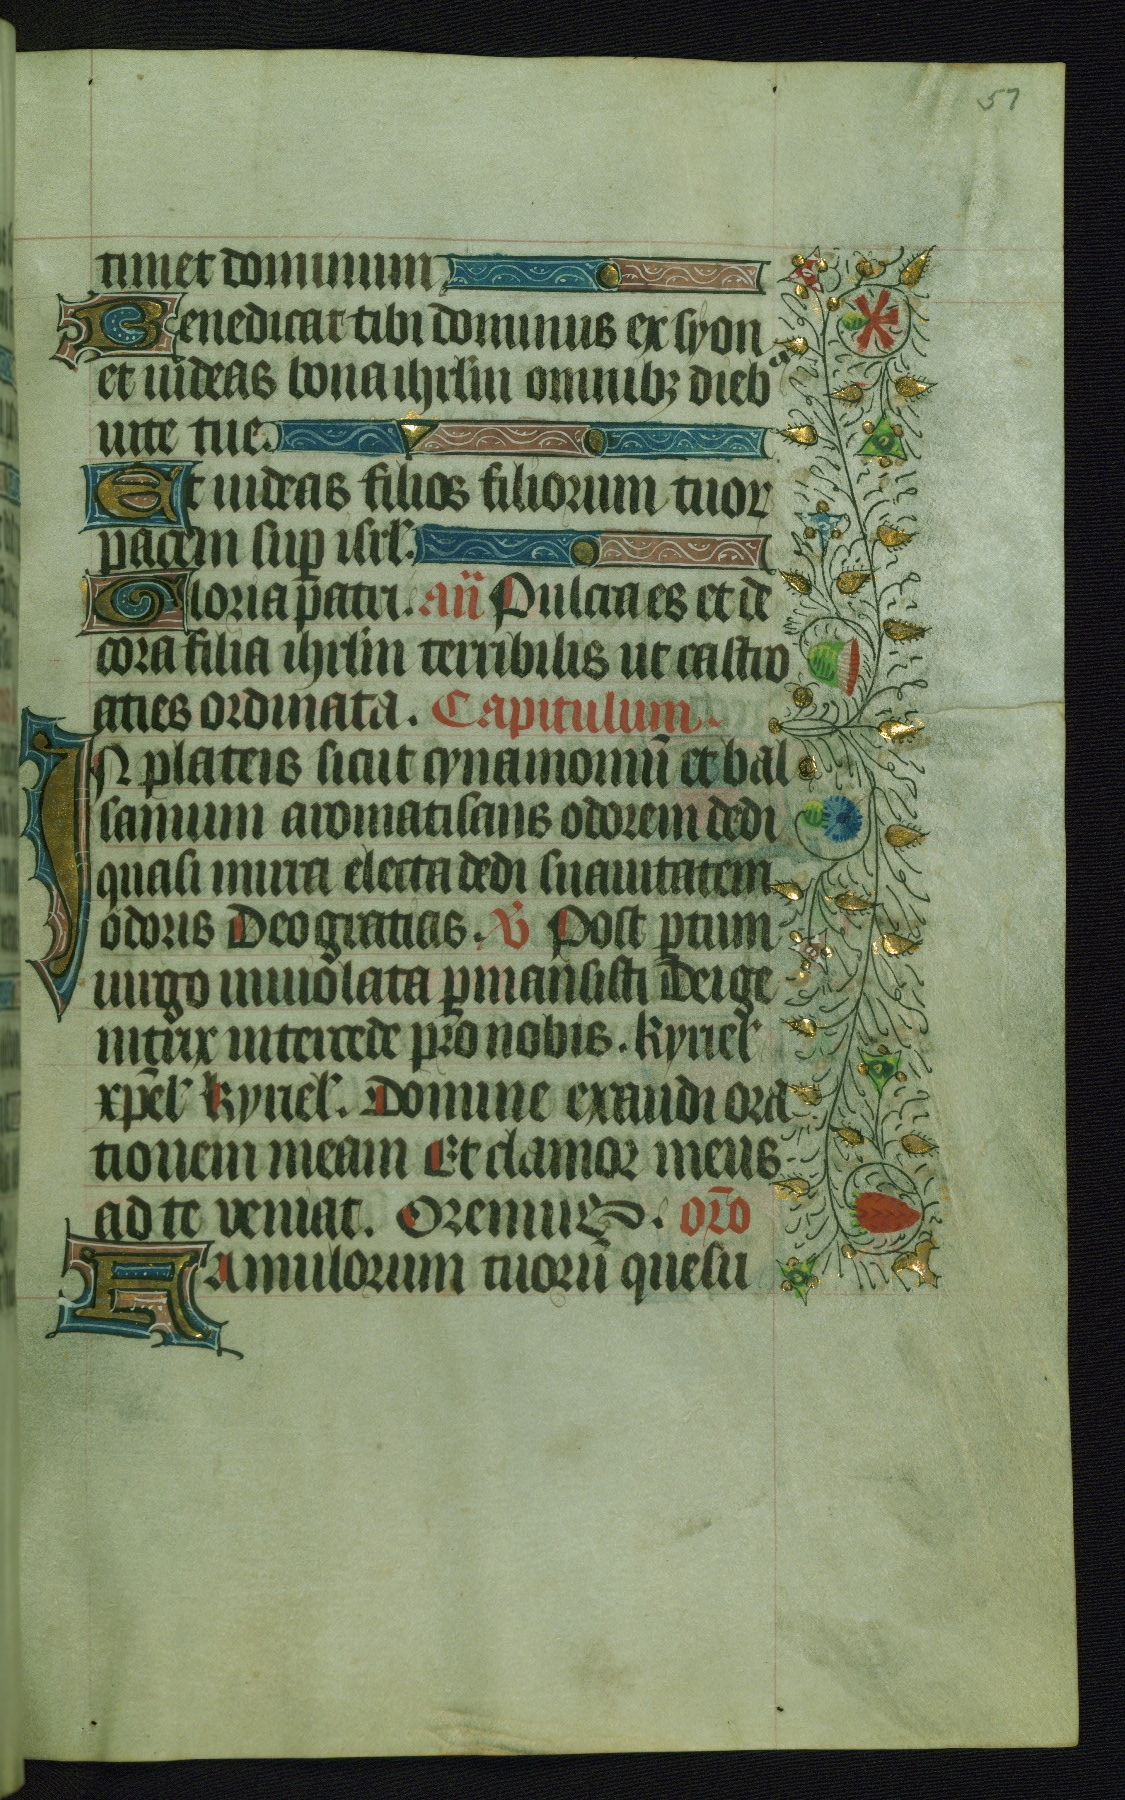 57
timet dominum
Benedicat tibi dominus ex syon
et uideas bona ihrl̄m omnibꝫ diebꝰ
uite tue.
Et uideas filios filiorum tuoꝝ
pacem sup̱ isrl̄.
Gloria patri. an̄ Pulcra es et de
cora filia ihrl̄m terribilis ut castro
acies ordinata. Capitulum.
IN plateis sicut cynamomū et bal
samum aromatisans odorem dedi
quasi mirra electa dedi suauitatem
odoris Deo gratias. V̄ Post ꝑtum
uirgo inuiolata ꝑmansisti Dei ge
nitrix intercede pro nobis. Kyriel̄
xp̄el̄ Kyriel̄. Domine exaudi ora
tionem meam Et clamor meus
ad te veniat. Oremus. or̄o
FAmulorum tuorū quesu